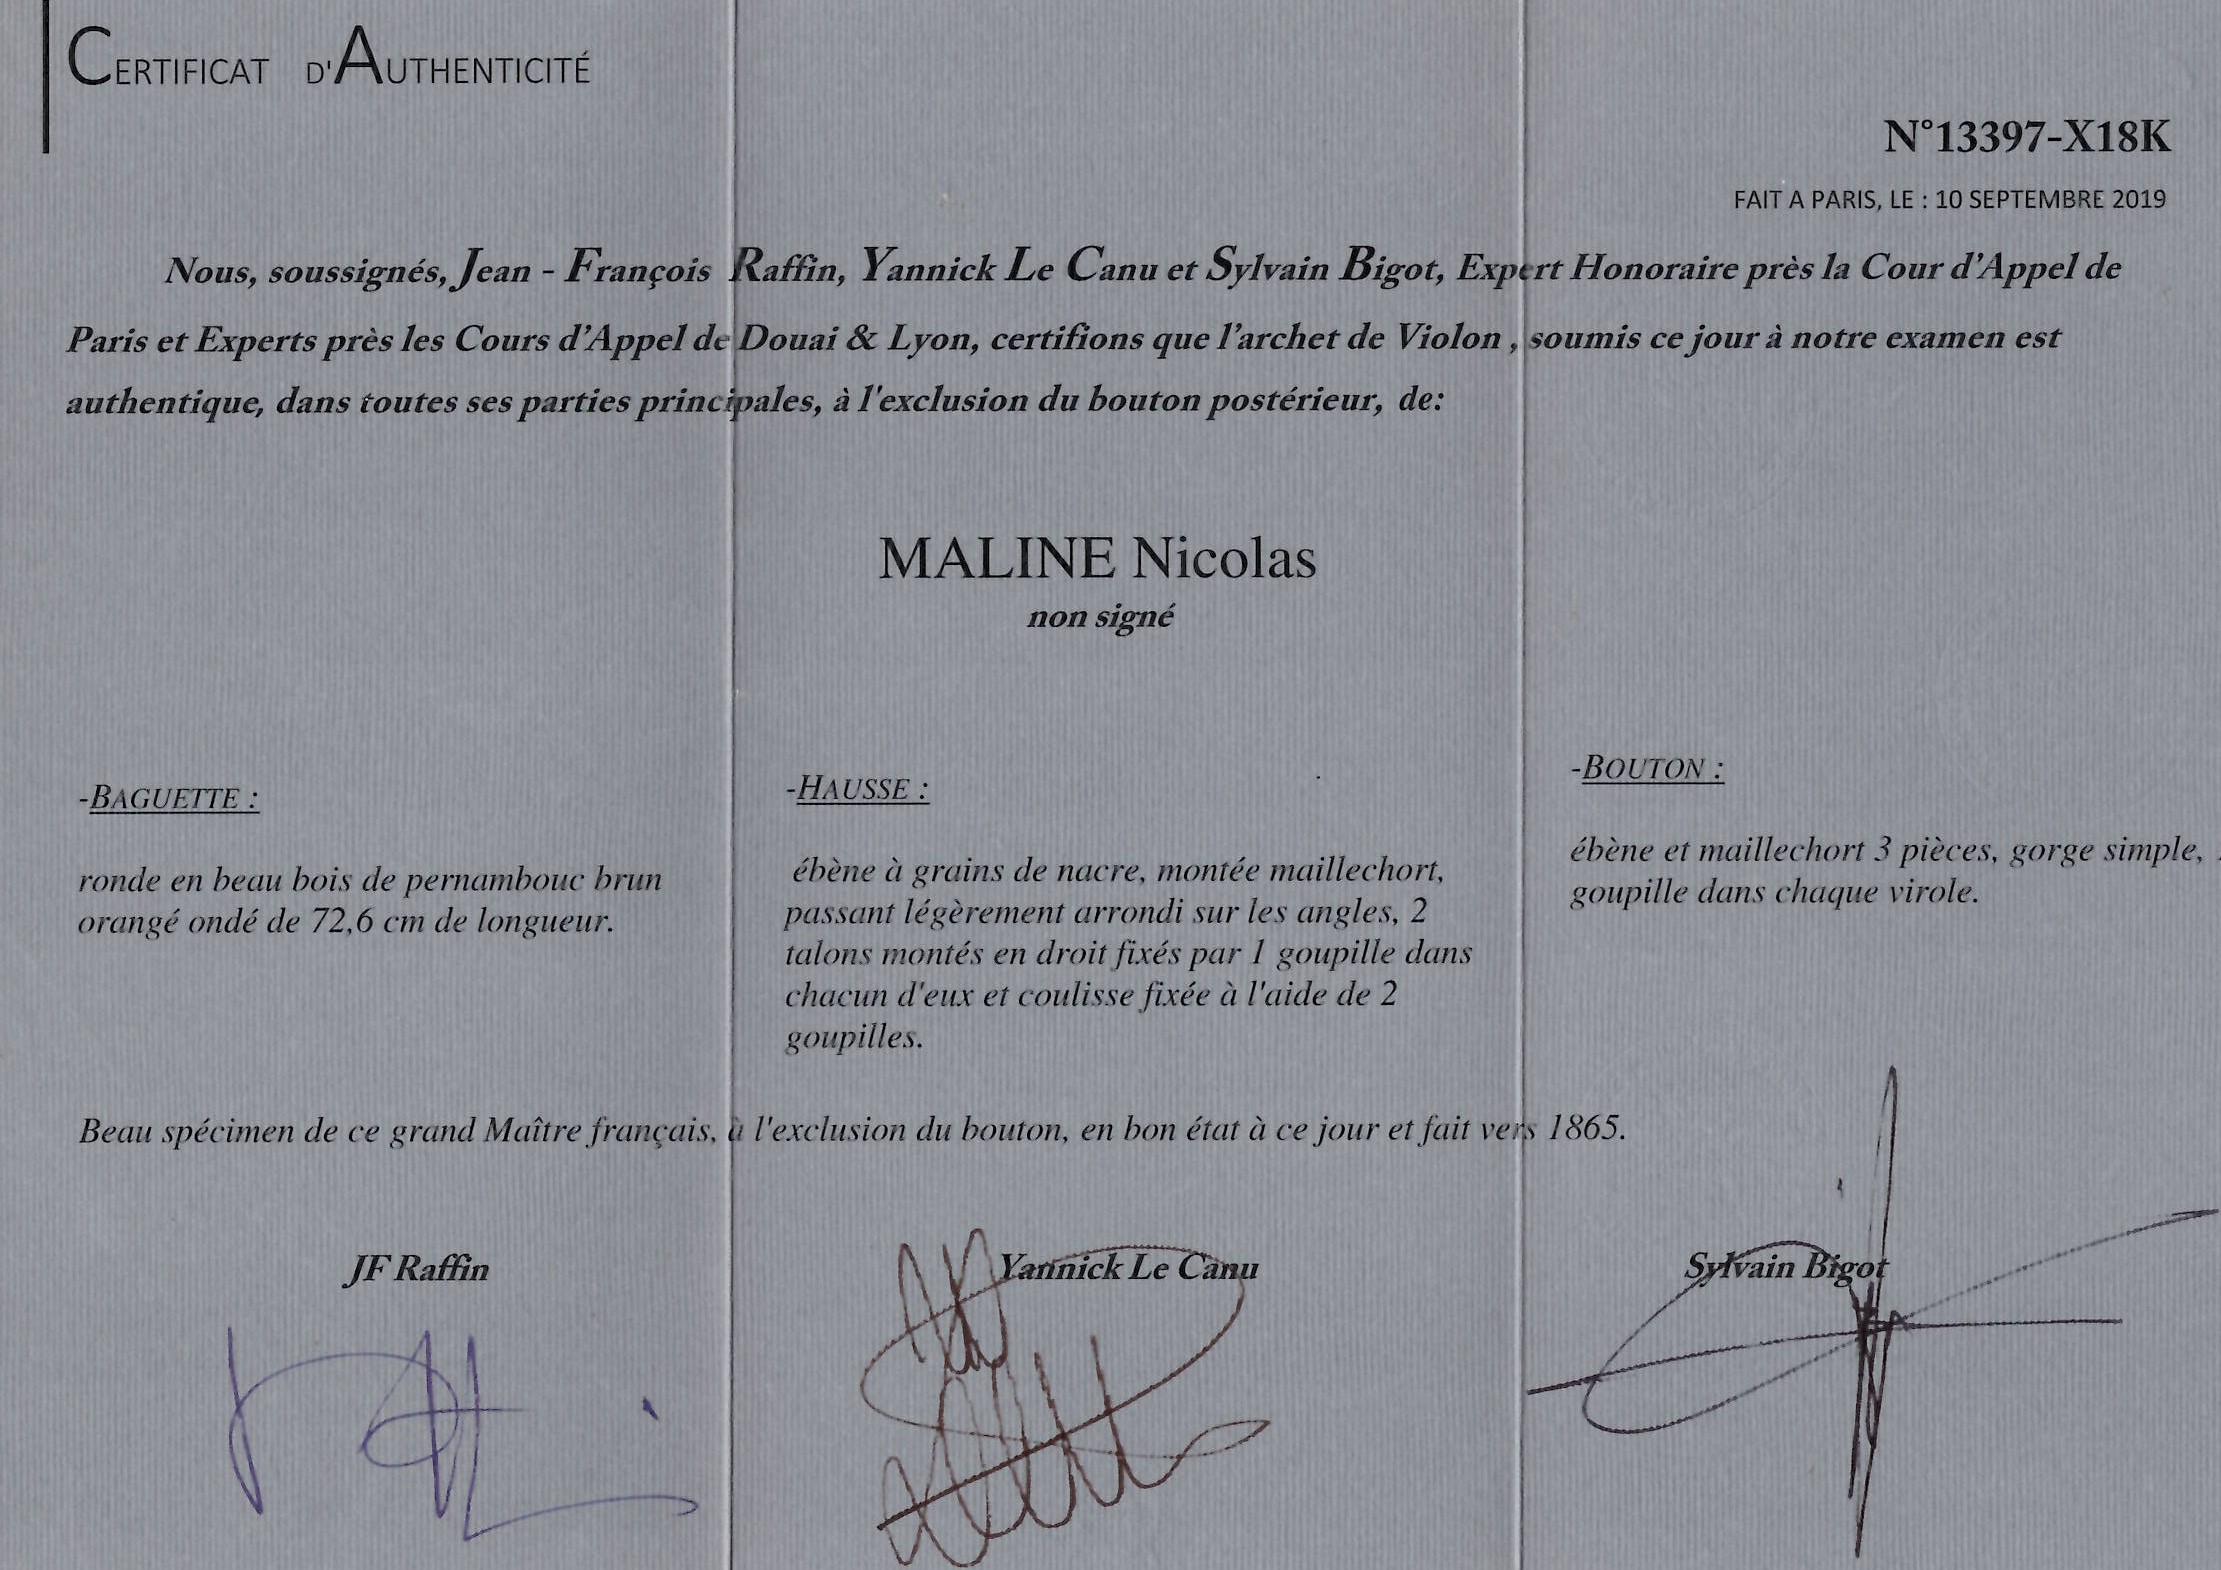 CERTIFICAT D'AUTHENTICITÉ
N°13397-X18K
FAIT A PARIS, LE : 10 SEPTEMBRE 2019
Nous, soussignés, Jean - François Raffin, Yannick Le Canu et Sylvain Bigot, Expert Honoraire près la Cour d'Appel de
Paris et Experts près les Cours d'Appel de Douai & Lyon, certifions que l'archet de Violon , soumis ce jour à notre examen est
authentique, dans toutes ses parties principales, à l'exclusion du bouton postérieur, de:
MALINE Nicolas
non signé
-BAGUETTE :
ronde en beau bois de pernambouc brun
orangé ondé de 72,6 cm de longueur.
-HAUSSE :
ébène à grains de nacre, montée maillechort,
passant légèrement arrondi sur les angles, 2
talons montés en droit fixés par 1 goupille dans
chacun d'eux et coulisse fixée à l'aide de 2
goupilles.
-BOUTON :
ébène et maillechort 3 pièces, gorge simple,
goupille dans chaque virole.
Beau spécimen de ce grand Maître français, à l'exclusion du bouton, en bon état à ce jour et fait vers 1865.
JF Raffin
Yannick Le Canu
Sylvain Bigot